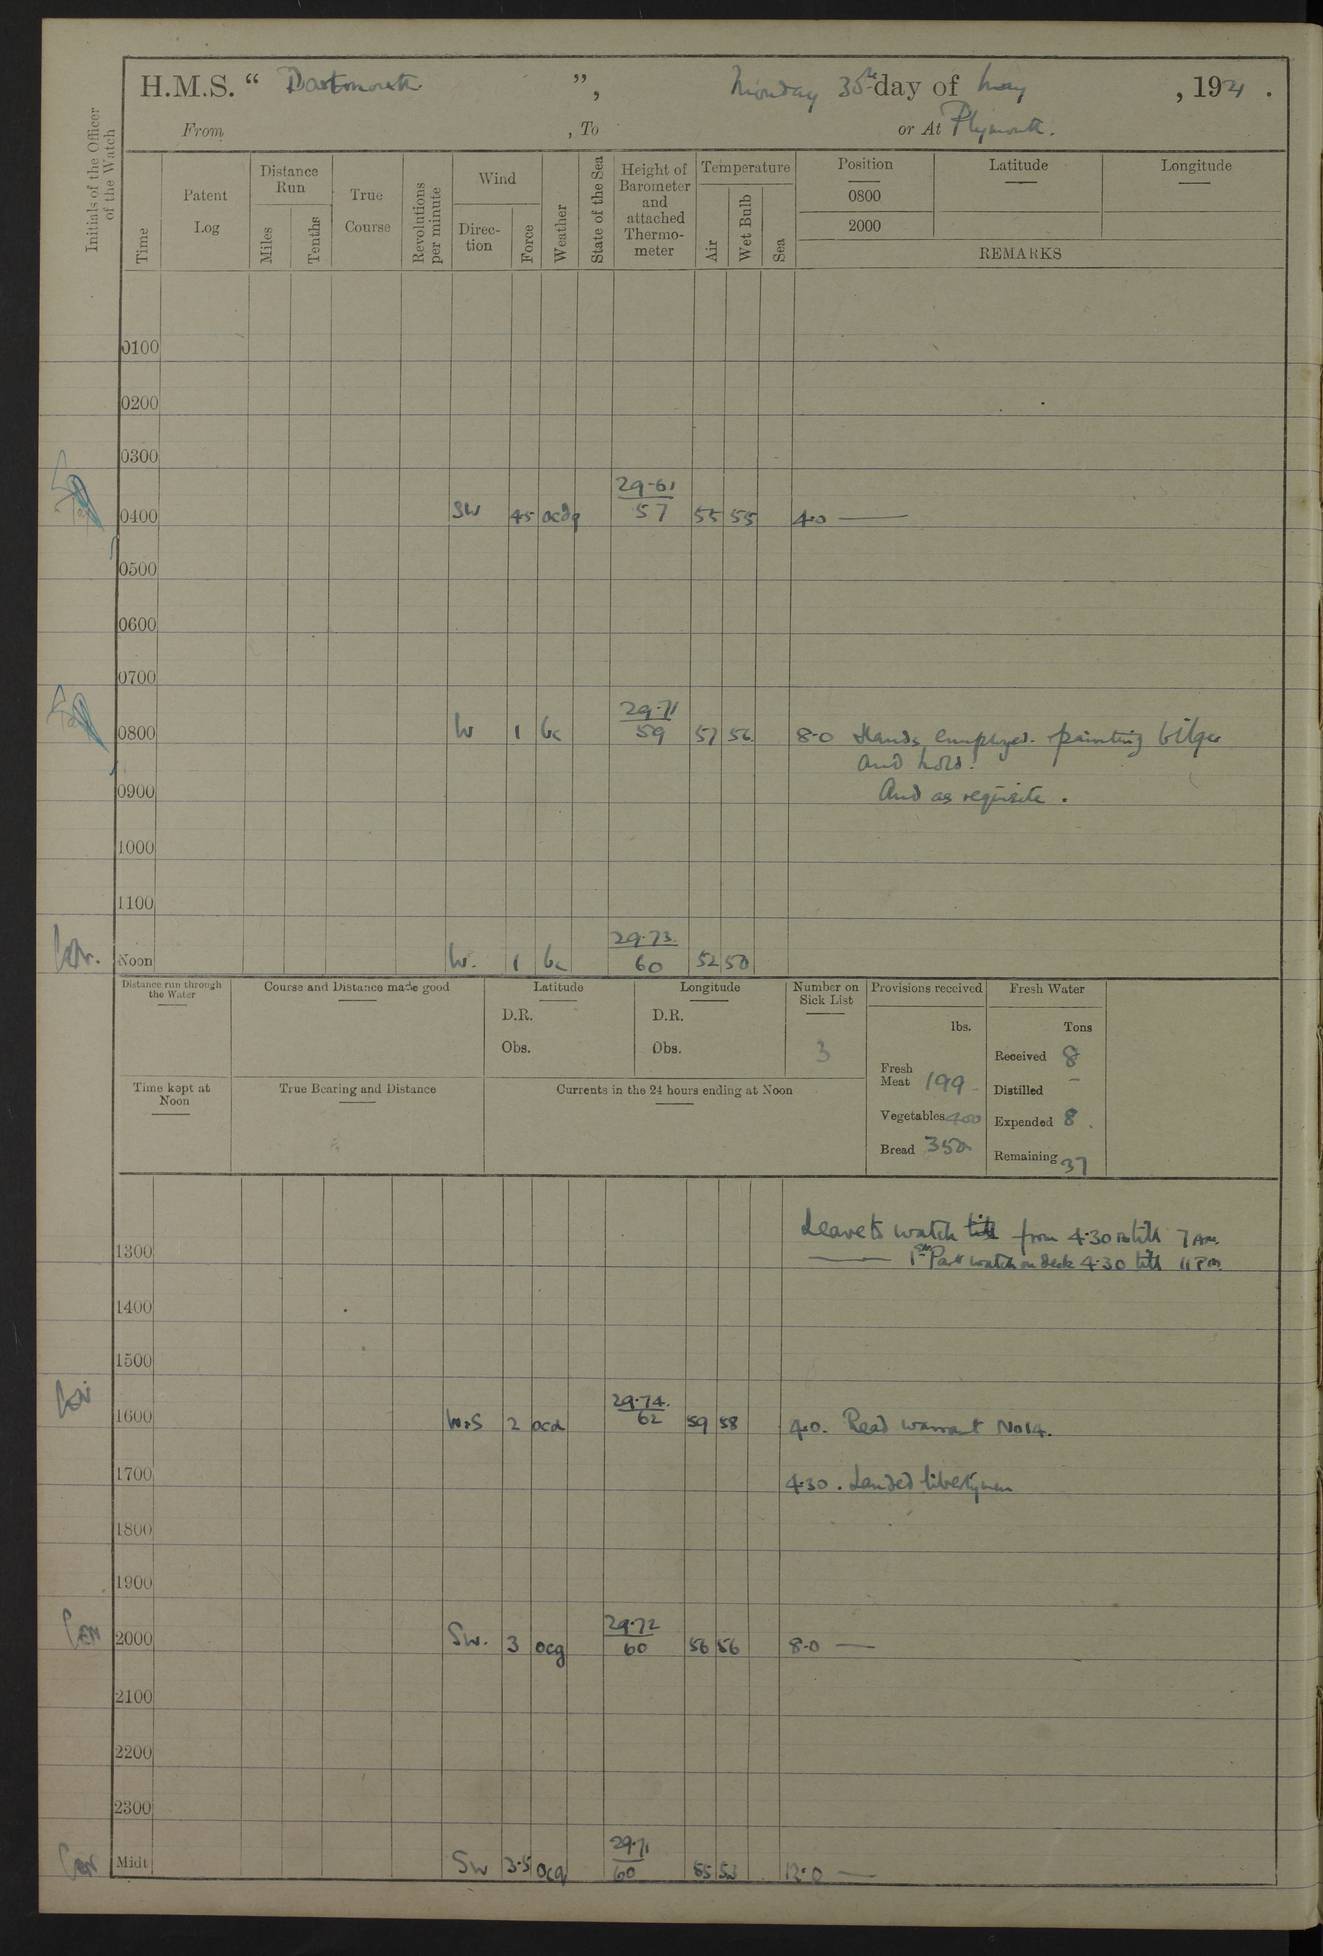 H.M.S. “ Dartmouth ”, Monday 30th day of May , 1921 .
From , To or At Plymouth.
Initials of the Officer of the Watch
Time
Patent Log
Distance Run
Miles
Tenths
True Course
Revolutions per minute
Wind
Direction
Force
Weather
State of the Sea
Height of Barometer and attached Thermometer
Temperature
Air
Wet Bulb
Sea
Position Latitude Longitude
0800
2000
REMARKS
0100
0200
0300
0400 SW 4.5 ocdq 29.61 57 55 55 4.0 —
0500
0600
0700
0800 W 1 bc 29.71 59 57 56 8.0 Hands employed. painting bilges
and hold.
0900 And as requisite.
1000
1100
Noon W. 1 bc 29.73 60 52 50
Distance run through the Water
Course and Distance made good
Latitude
D.R.
Obs.
Longitude
D.R.
Obs.
Number on Sick List
3
Provisions received
lbs.
Fresh Meat 199
Vegetables 400
Bread 350
Fresh Water
Tons
Received 8
Distilled -
Expended 8.
Remaining 37
Time kept at Noon
True Bearing and Distance
Currents in the 24 hours ending at Noon
Leave to watch till from 4.30 PM till 7 AM.
1300 — 1st Part watch on deck 4.30 till 11 PM.
1400
1500
1600 WxS 2 29.74. 62 59 58 4.0. Read warrant No 14.
1700 4.30. Landed libertymen
1800
1900
2000 SW. 3 ocg 29.72 60 56 56 8.0 —
2100
2200
2300
Midt SW 3.5 29.71 60 55 53 12.0 —